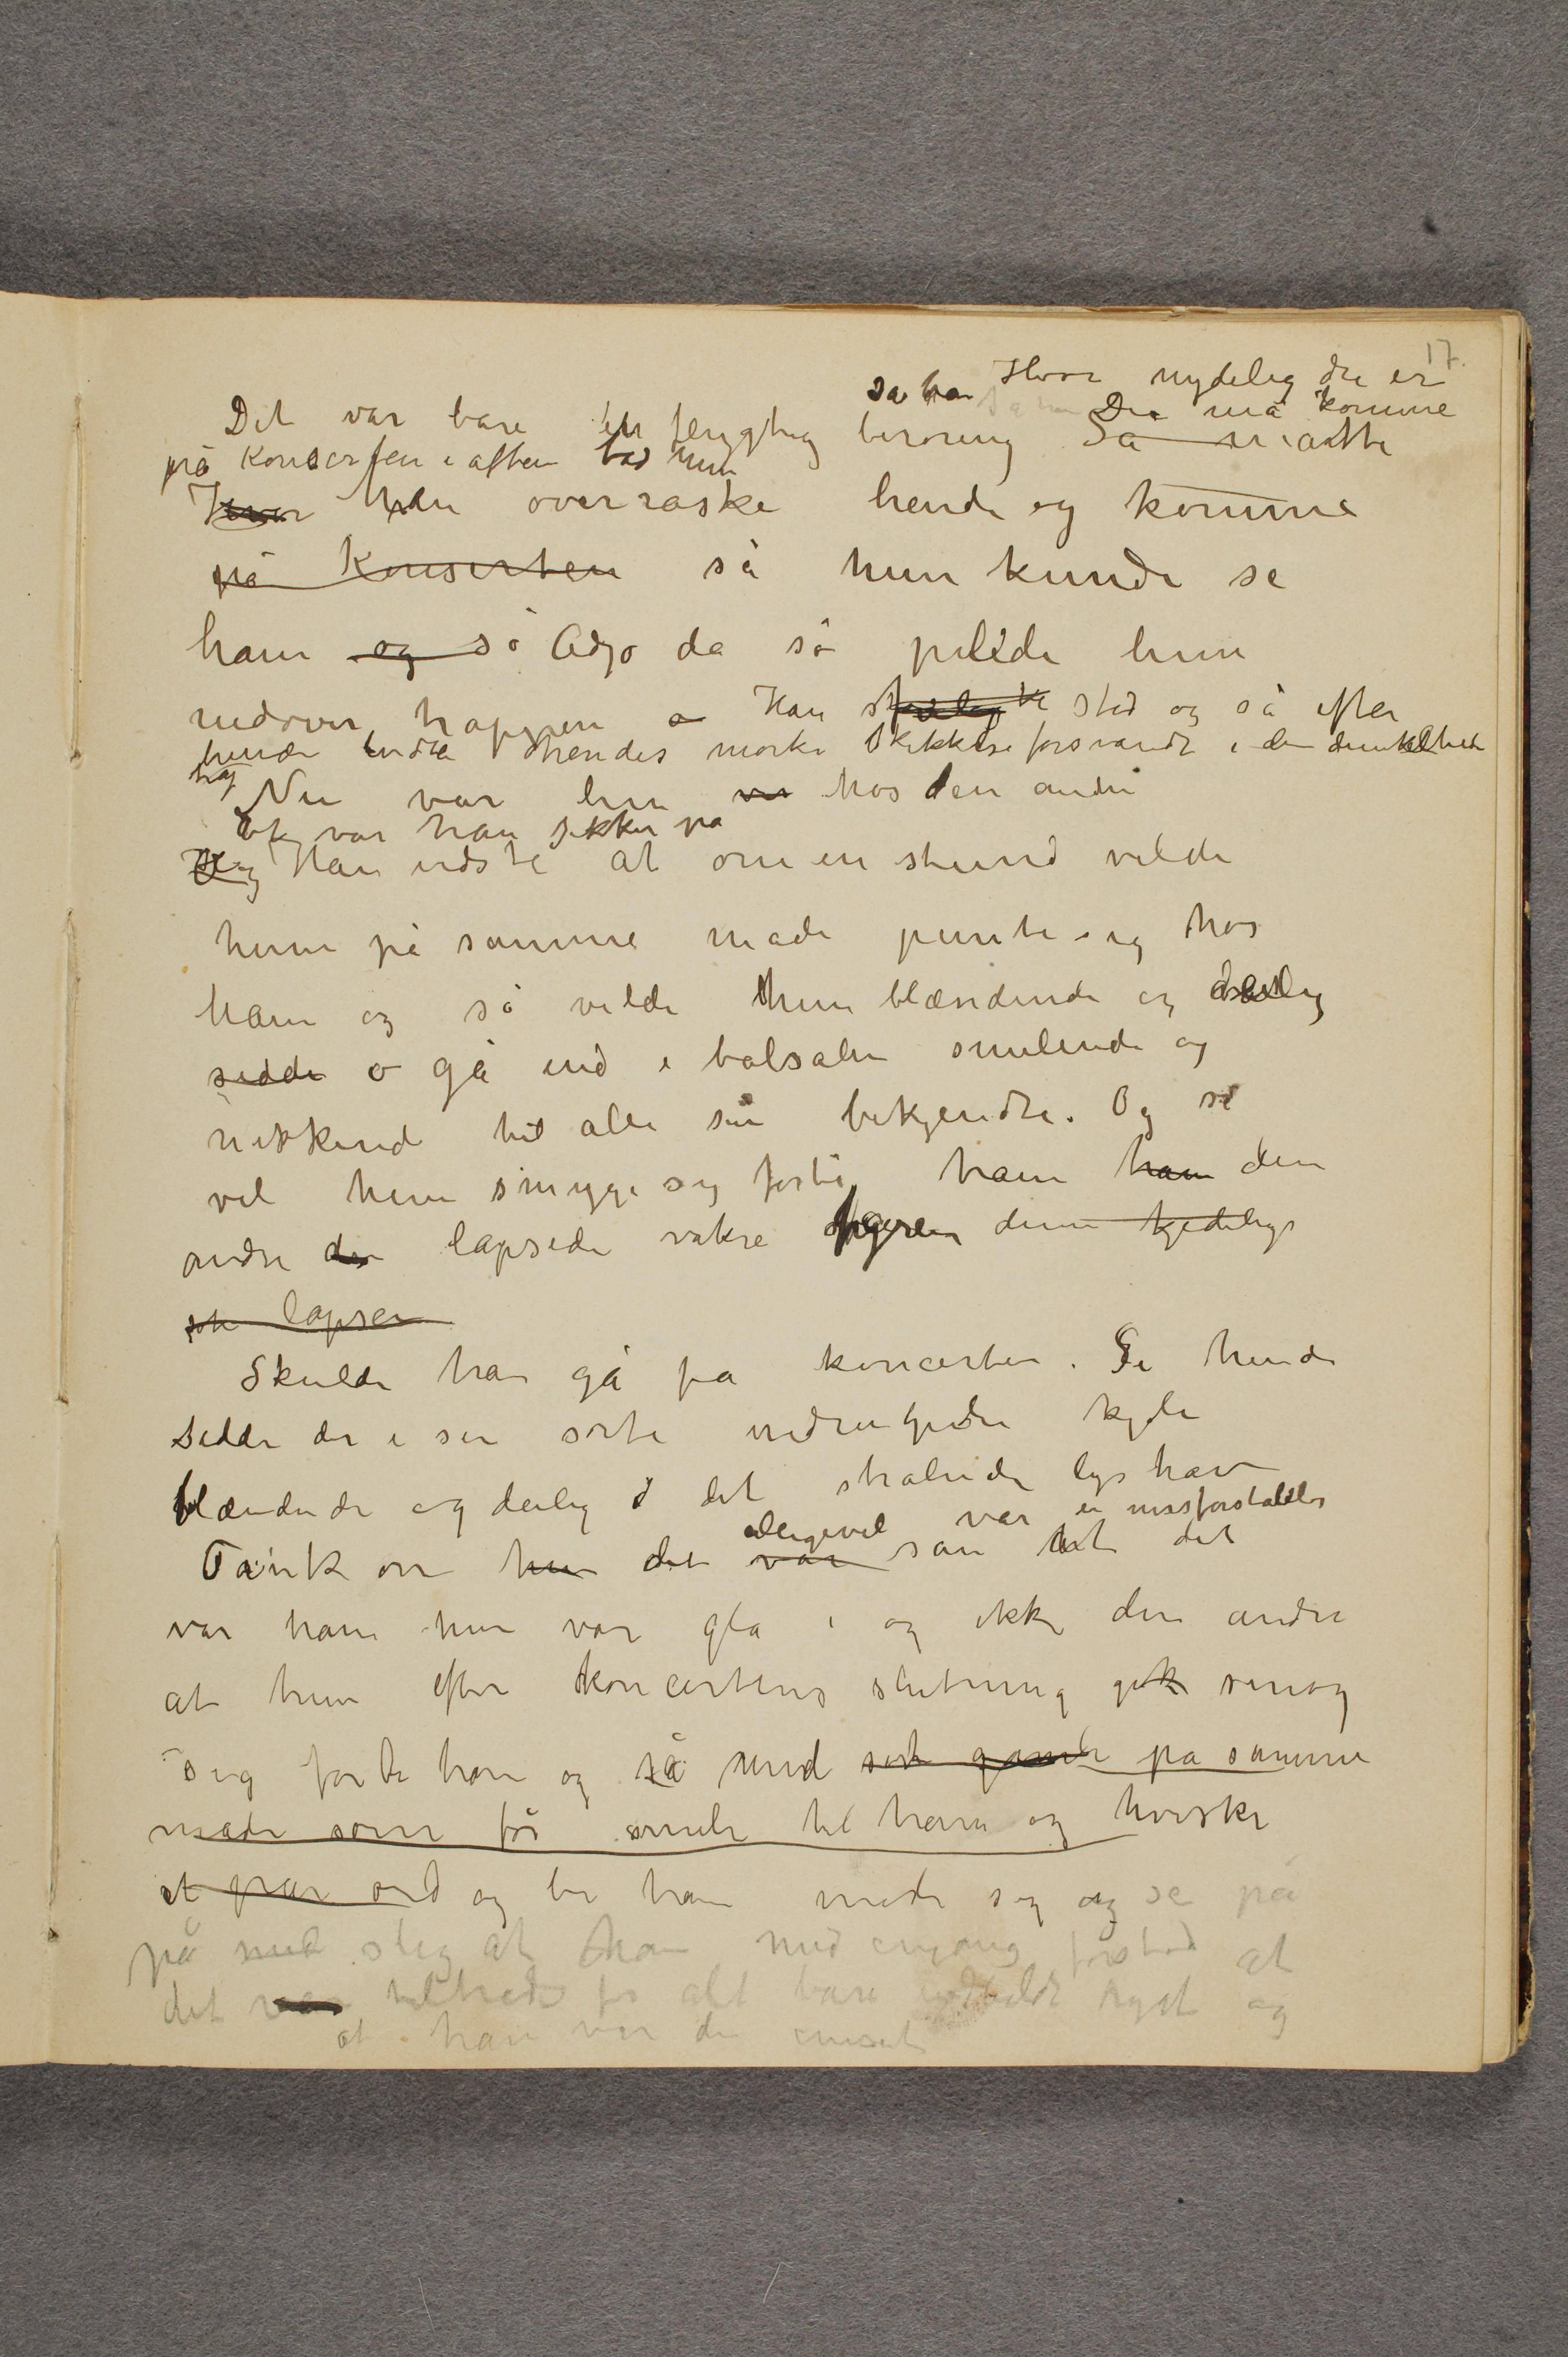 17.
Hvor nydelig du er
sa han Du må komme
Det var bare en flygtig berøring Så måtte
på Konserten i aften bad hun
Hvor han overraske hende og komme
på Konserten så hun kunde se
ham og så Adjø da så pilede hun
nedover trappen Han stod og så efter
hende indtil hendes mørke skikkelse forsvandt i den dunkelhed
Nu var hun hos den andre
Og var han sikker på
Han vidste at om en stund vilde
hun på samme måde pynte sig hos
ham og så vilde hun blændende og deilig
sidde o gå ind i balsalen smilende og
nikkend til alle sine bekjendte. Og så
vil hun smyge sig forbi ham ham den
andre den lapsede vakre denne kjedelige
lapsen
Skulde han gå på koncerten. Se hende
sidde der i sin sorte nedringede kjole
blændende og deilig i det strålende lyshav
alligevel var en missforståelse
Tænk om hun det var san at det
var ham hun var gla i og ikke den andre
at hun efter koncertens slutning gik smøg
sig forbi ham og så med på samme
måde som før smile til ham og hviske
et par ord og be ham møde sig og se på
på med slig at han med engang forstod at
det var tiltrods for alt bare tyst og
at han var den eneste